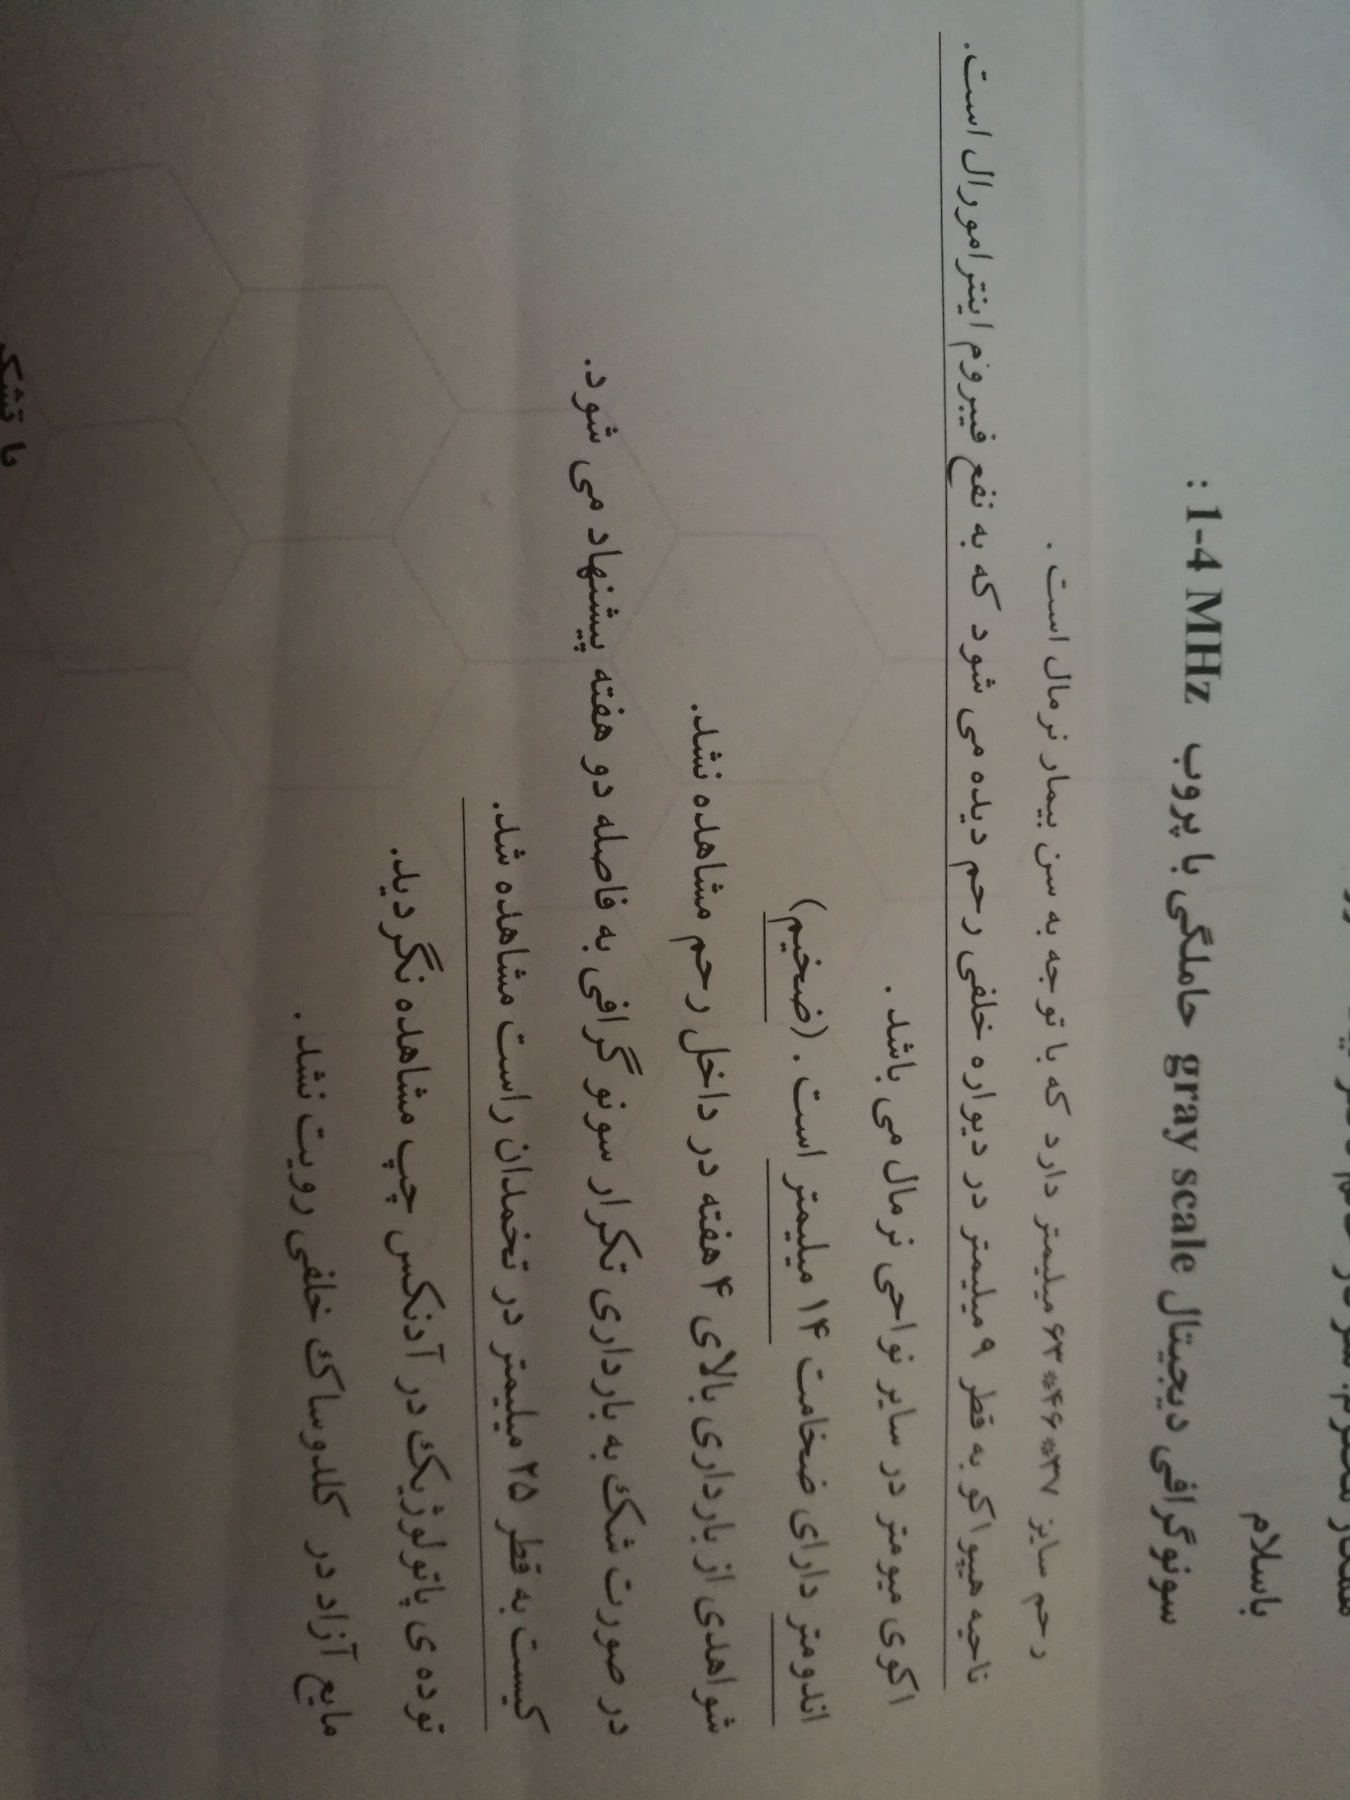 همکار محترم، سرکار خانم
باسلام
سونوگرافی دیجیتال gray scale حاملگی با پروب 1-4 MHz :
رحم سایز ۳۷*۴۶*۶۳ میلیمتر دارد که با توجه به سن بیمار نرمال است .
ناحیه هیپواکو به قطر ۹ میلیمتر در دیواره خلفی رحم دیده می شود که به نفع فیبروم اینترامورال است.
اکوی میومتر در سایر نواحی نرمال می باشد .
اندومتر دارای ضخامت ۱۴ میلیمتر است . (ضخیم)
شواهدی از بارداری بالای ۴ هفته در داخل رحم مشاهده نشد.
در صورت شک به بارداری تکرار سونوگرافی به فاصله دو هفته پیشنهاد می شود.
کیست به قطر ۲۵ میلیمتر در تخمدان راست مشاهده شد.
توده ی پاتولوژیک در آدنکس چپ مشاهده نگردید.
مایع آزاد در کلدوساک خلفی رویت نشد .
با تشکر